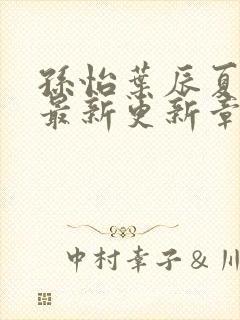 孫怡葉辰夏
最新更新章
中村幸子&川